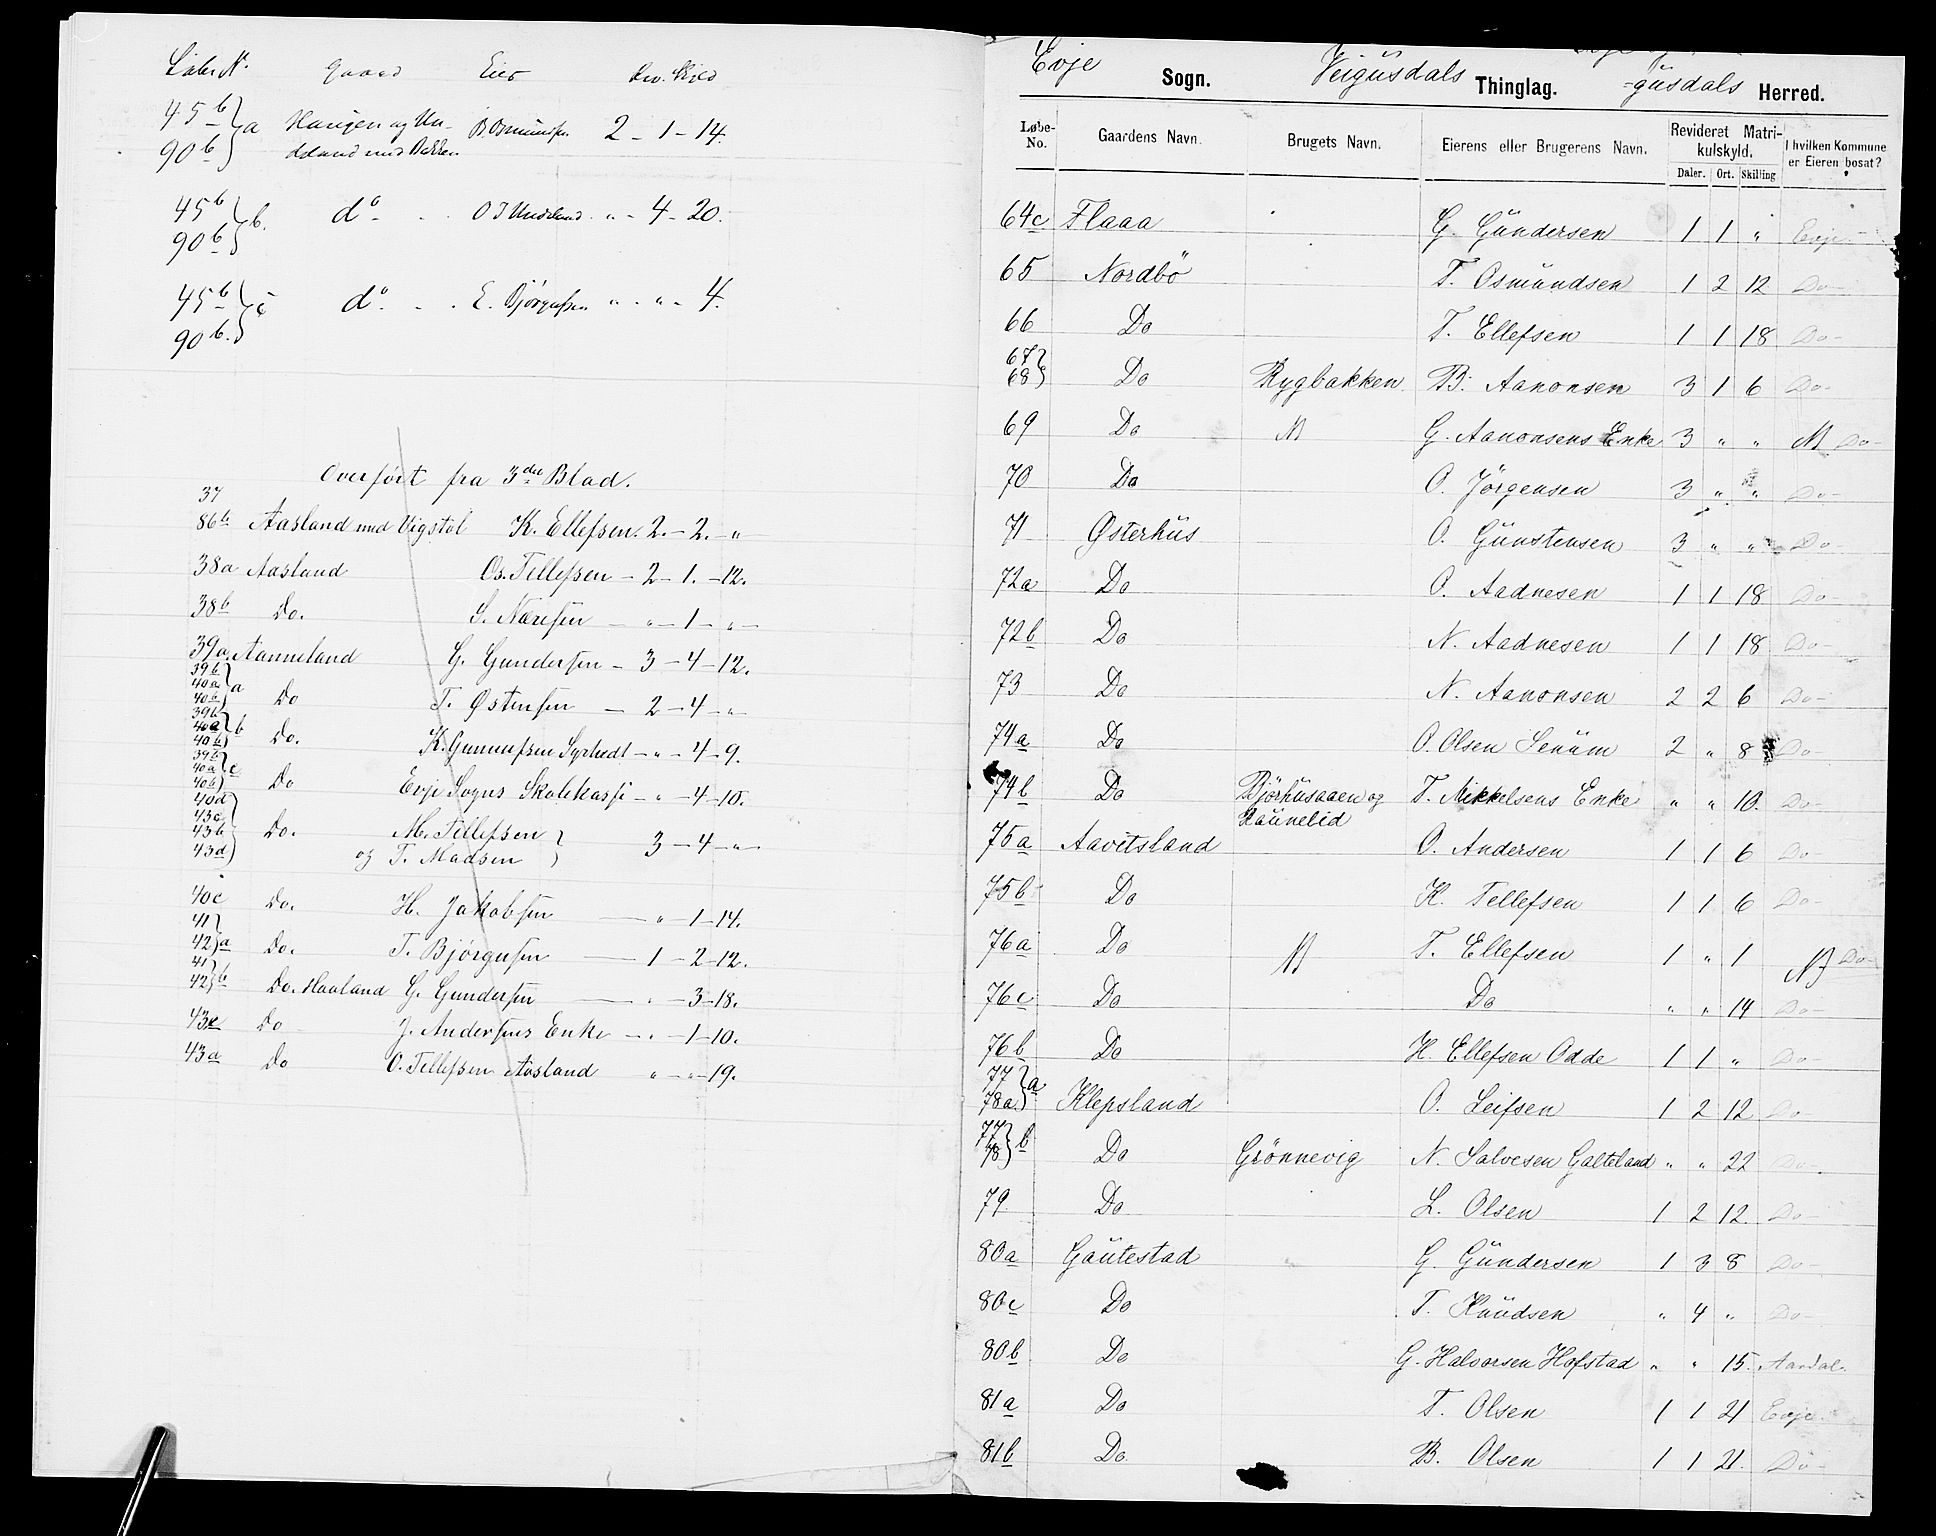 Løbe N. Gaard Eier Rev. Skyld
45b } a Haugen og Un- B Osmundsen 2 - 1 - 14.
90b dsland med Bakken
45b } b. do - . O T Undsland " - 4 - 20.
90b
45b } c do - . E. Bjørgufsen " - " - 4.
90b.
Overført fra 3die Blad.
37
86b Aasland med Vigstøl K. Ellefsen. 2. - 2. - "
38a Aasland Os. Tellefsen - 2 - 1. - 12.
38b Do. - " - 1 - " -
39a. Aanneland G. Gundersen - 3 - 4 - 12.
39b 40a 40b } a Do T. Østensen - 2 - 4 - " -
39b 40a 40b } b Do. K. Gunnufsen Syrtvedt - " - 4 - 9.
39b 40a 40b } c Do Evje Sogns Skolekasse - " - 4 - 10.
40d 43c 43b 43d } Do. M. Tellefsen og T. Madsen } 3 - 4 - " -
40c Do. H. Jakobsen - " - 1 - 14.
41 42 } a Do. T. Bjørgufsen - 1 - 2 - 12.
41 42 } b Do. Haaland G. Gundersen - " - 3 - 18.
43e Do J. Andersens Enke - " - 1 - 10.
43a Do O. Tellefsen Aasland " - " - 19.
Evje Sogn. Veigusdals Thinglag. -gusdals Herred.
Løbe-No. Gaardens Navn. Brugets Navn. Eierens eller Brugerens Navn. Revideret Matri-kulskyld. I hvilken Kommune er Eieren bosat?
Daler. Ort. Skilling
64c Flaaa G. Gundersen 1 1 " Evje -
65 Nordbö T. Osmundsen 1 2 12 Do -
66 Do T. Ellefsen 1 1 18 Do -
67 68 } Do Rygbakken B. Aanonsen 3 1 6 Do -
69 Do G. Aanonsens Enke 3 " " Do -
70 Do O. Jörgensen 3 " " Do -
71 Østerhus O. Gunstensen 3 " " Do -
72a Do O. Aadnesen 1 1 18 Do -
72b Do N. Aadnesen 1 1 18 Do -
73 Do N. Aanonsen 2 2 6 Do -
74a Do O. Olsen Senum 2 " 8 Do -
74b Do Björhusaaen og Raunelid T. Mikkelsens Enke " " 10. Do -
75a Aavitsland O. Andersen 1 1 6 Do
75b Do K. Tellefsen 1 1 6 Do -
76a Do T. Ellefsen 1 " 1 Do -
76c Do Do " " 14 Do -
76b Do H. Ellefsen Odde 1 1 " Do -
77 78a } a Klepsland O. Leifsen 1 2 12 Do -
77 78 } b Do Grönnevig N. Salvesen Galteland " " 22 Do -
79 Do L. Olsen 1 2 12. Do -
80a Gautestad G. Gundersen 1 3 8 Do -
80c Do T. Knudsen " 4 " Do -
80b Do G. Halvorsen Hofstad " " 15. Aardal.
81a Do T. Olsen 1 1 21 Evje.
81b Do B. Olsen 1 1 21. Do -